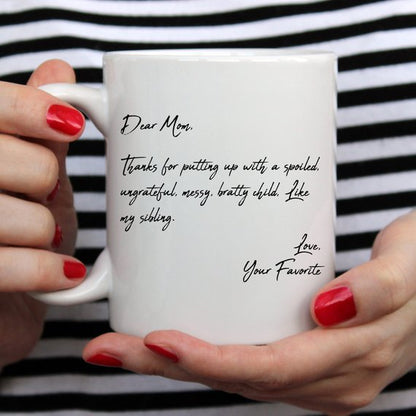 Dear Mom,
Thanks for putting up with a spoiled,
ungrateful, messy, bratty child. Like
my sibling.
Love,
Your Favorite